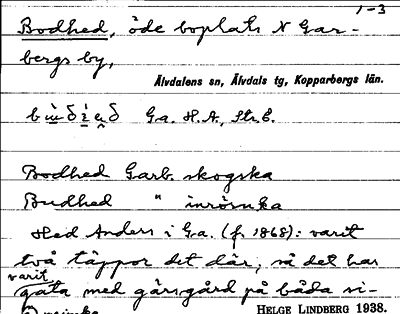 1-3
Bodhed, öde boplats N Gar-
bergs by,
Älvdalens sn, Älvdals tg, Kopparbergs län.
Ga. H.A., Str.E.
Bodhed Garb. skogska
Budhed " inrönska
Hed Anders i Ga. (f. 1868): varit
två täppor det där, så det har
varit
gata med gärsgård på båda si-
HELGE LINDBERG 1938.